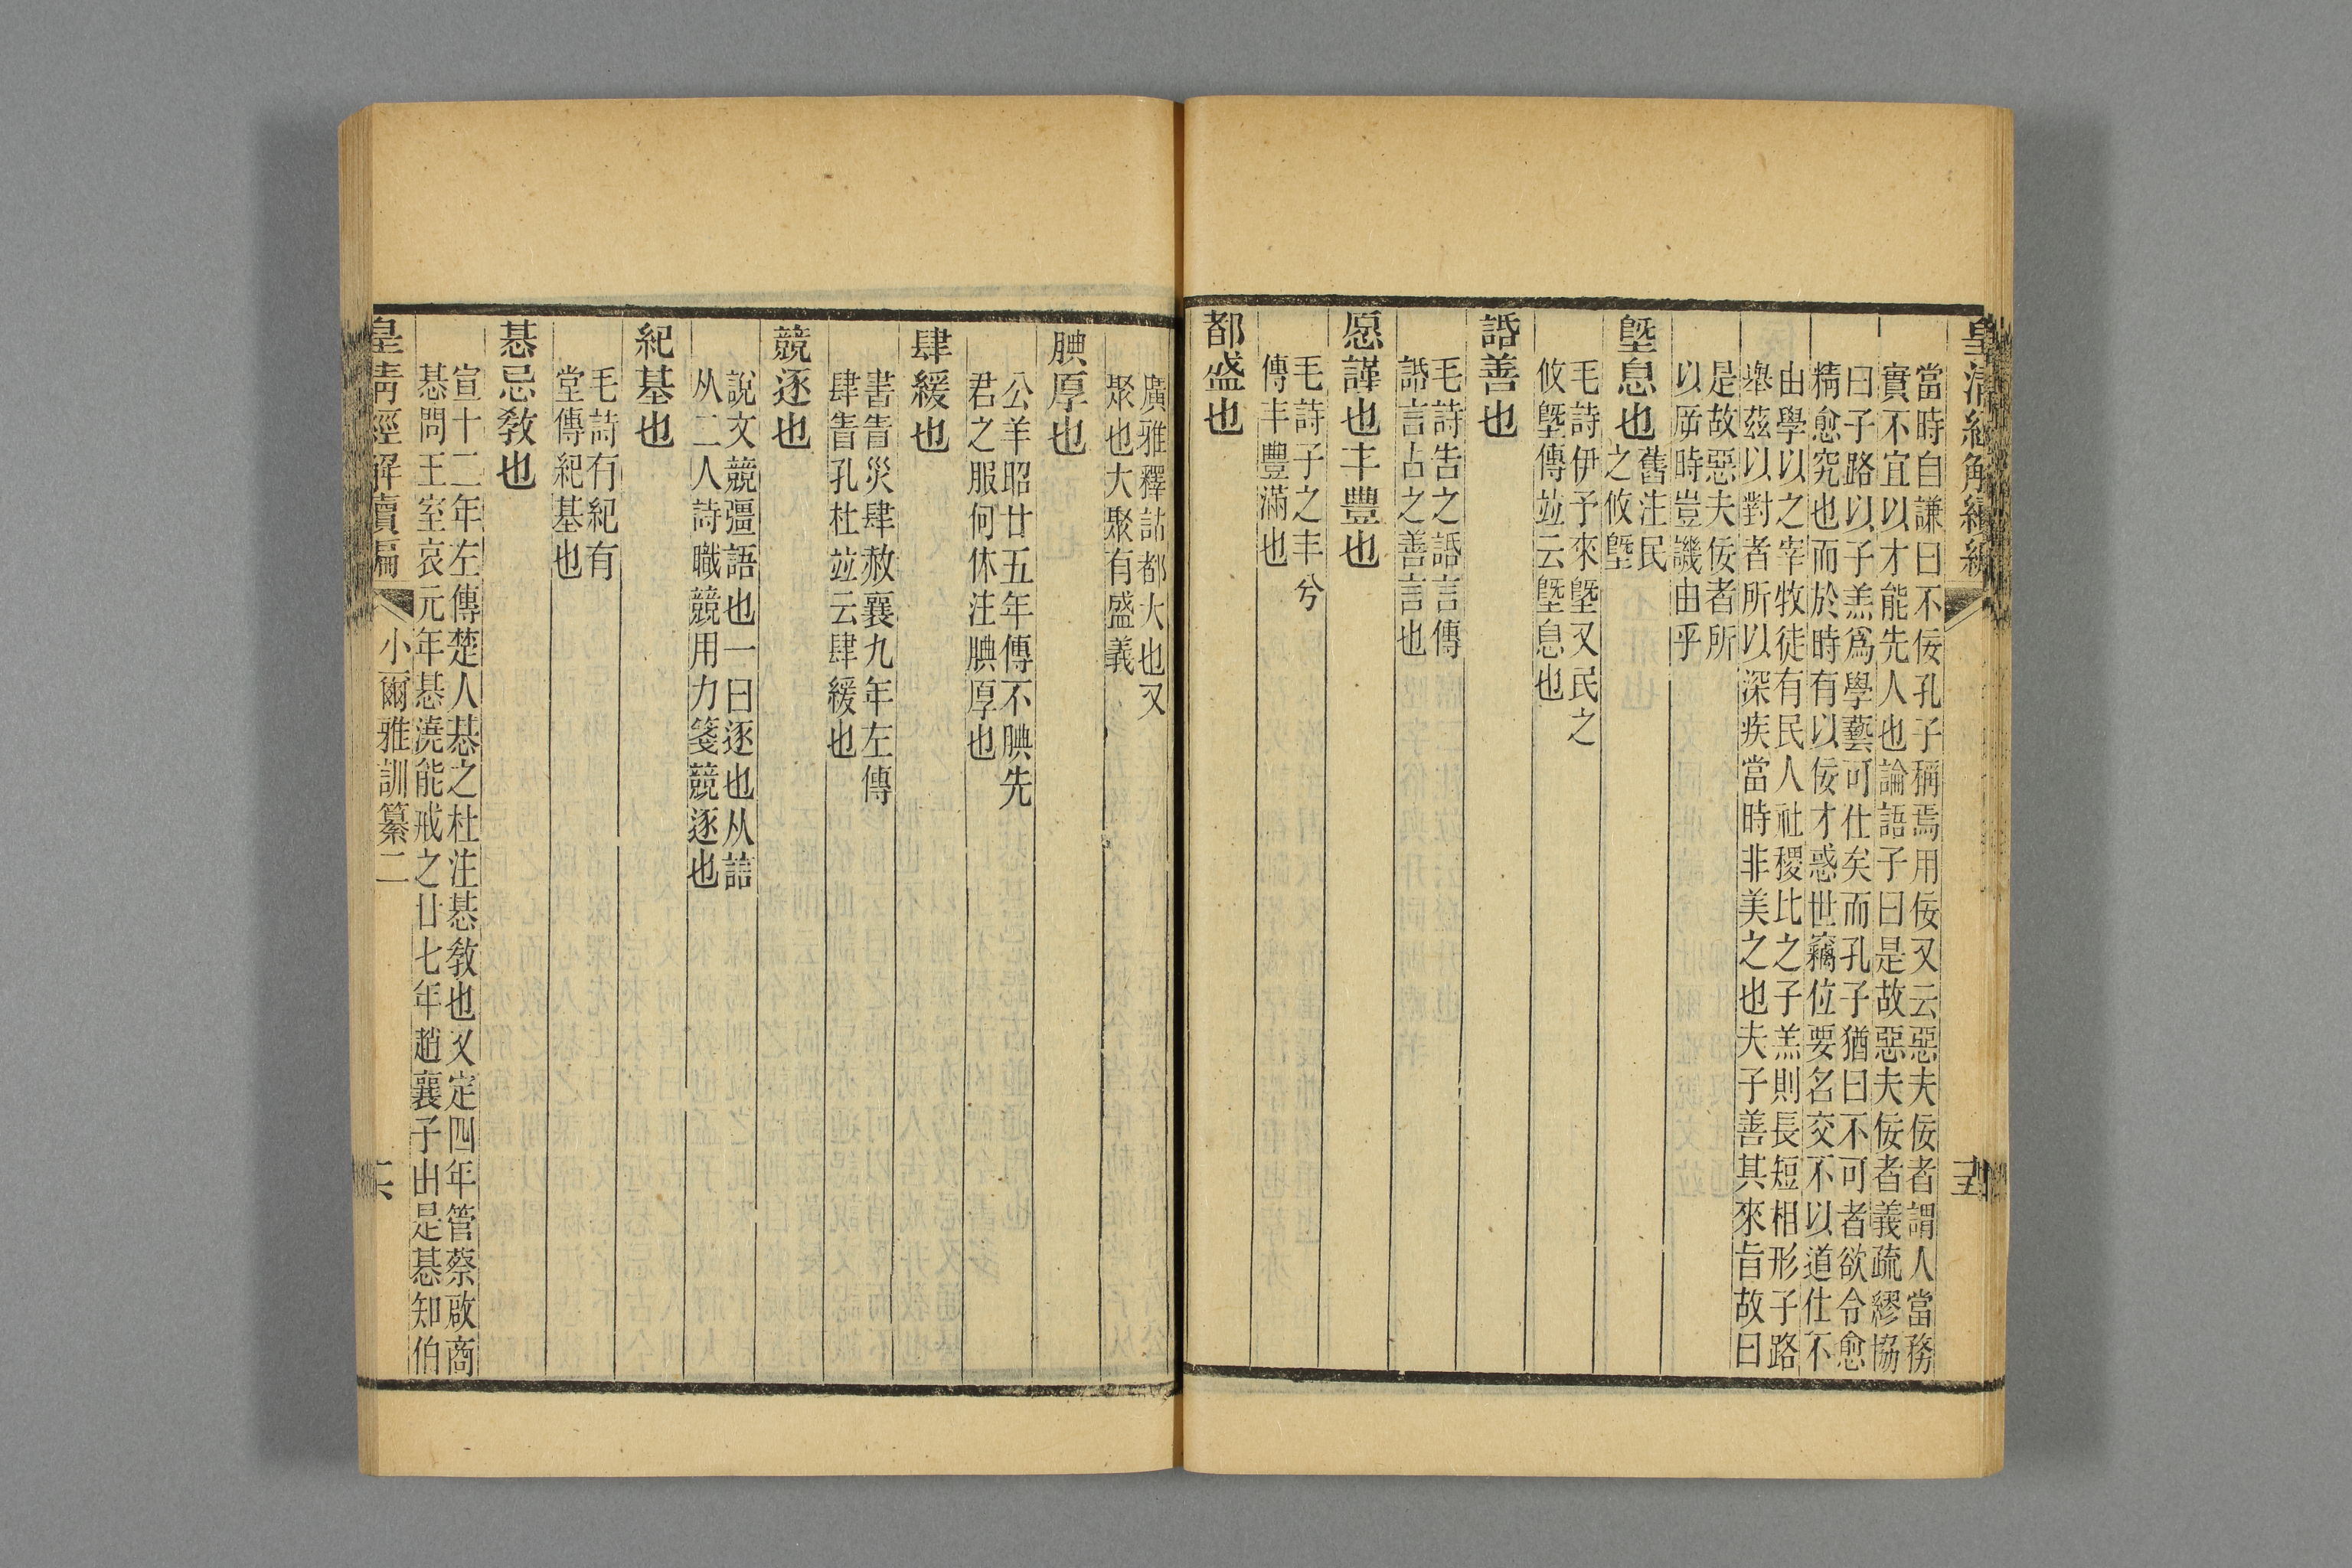 當時自謙曰不佞孔子稱焉用佞又云惡夫佞者謂人當務
實不宜以才能先人也論語子曰是故惡夫佞者義疏繆協
曰子路以子羔爲學藝可仕矣而孔子猶曰不可者欲令愈
精愈究也而於時有以佞才惑世竊位要名交不以道仕不
由學以之宰牧徒有民人社稷比之子羔則長短相形子路
舉茲以對者所以深疾當時非美之也夫子善其來旨故曰
是故惡夫佞者所
以厝時豈譏由乎
塈息也舊注民
之攸塈
毛詩伊予來塈又民之
攸塈傳竝云塈息也
詁善也
毛詩吿之詁言傳
詁言古之善言也
愿謹也丰豐也
毛詩子之丰兮
傳丰豐滿也
都盛也
廣雅釋詁都大也又
聚也大聚有盛義
腆厚也
公羊昭廿五年傳不腆先
君之服何休注腆厚也
肆緩也
書眚災肆赦襄九年左傳
肆眚孔杜竝云肆緩也
競逐也
說文競彊語也一曰逐也从誩
从二人詩職競用力箋競逐也
紀基也
毛詩有紀有
堂傳紀基也
惎忌敎也
宣十二年左傳楚人惎之杜注惎敎也又定四年管蔡啟商
惎問王室哀元年惎澆能戒之廿七年趙襄子由是惎知伯
皇淸經解續編
小爾雅訓纂二